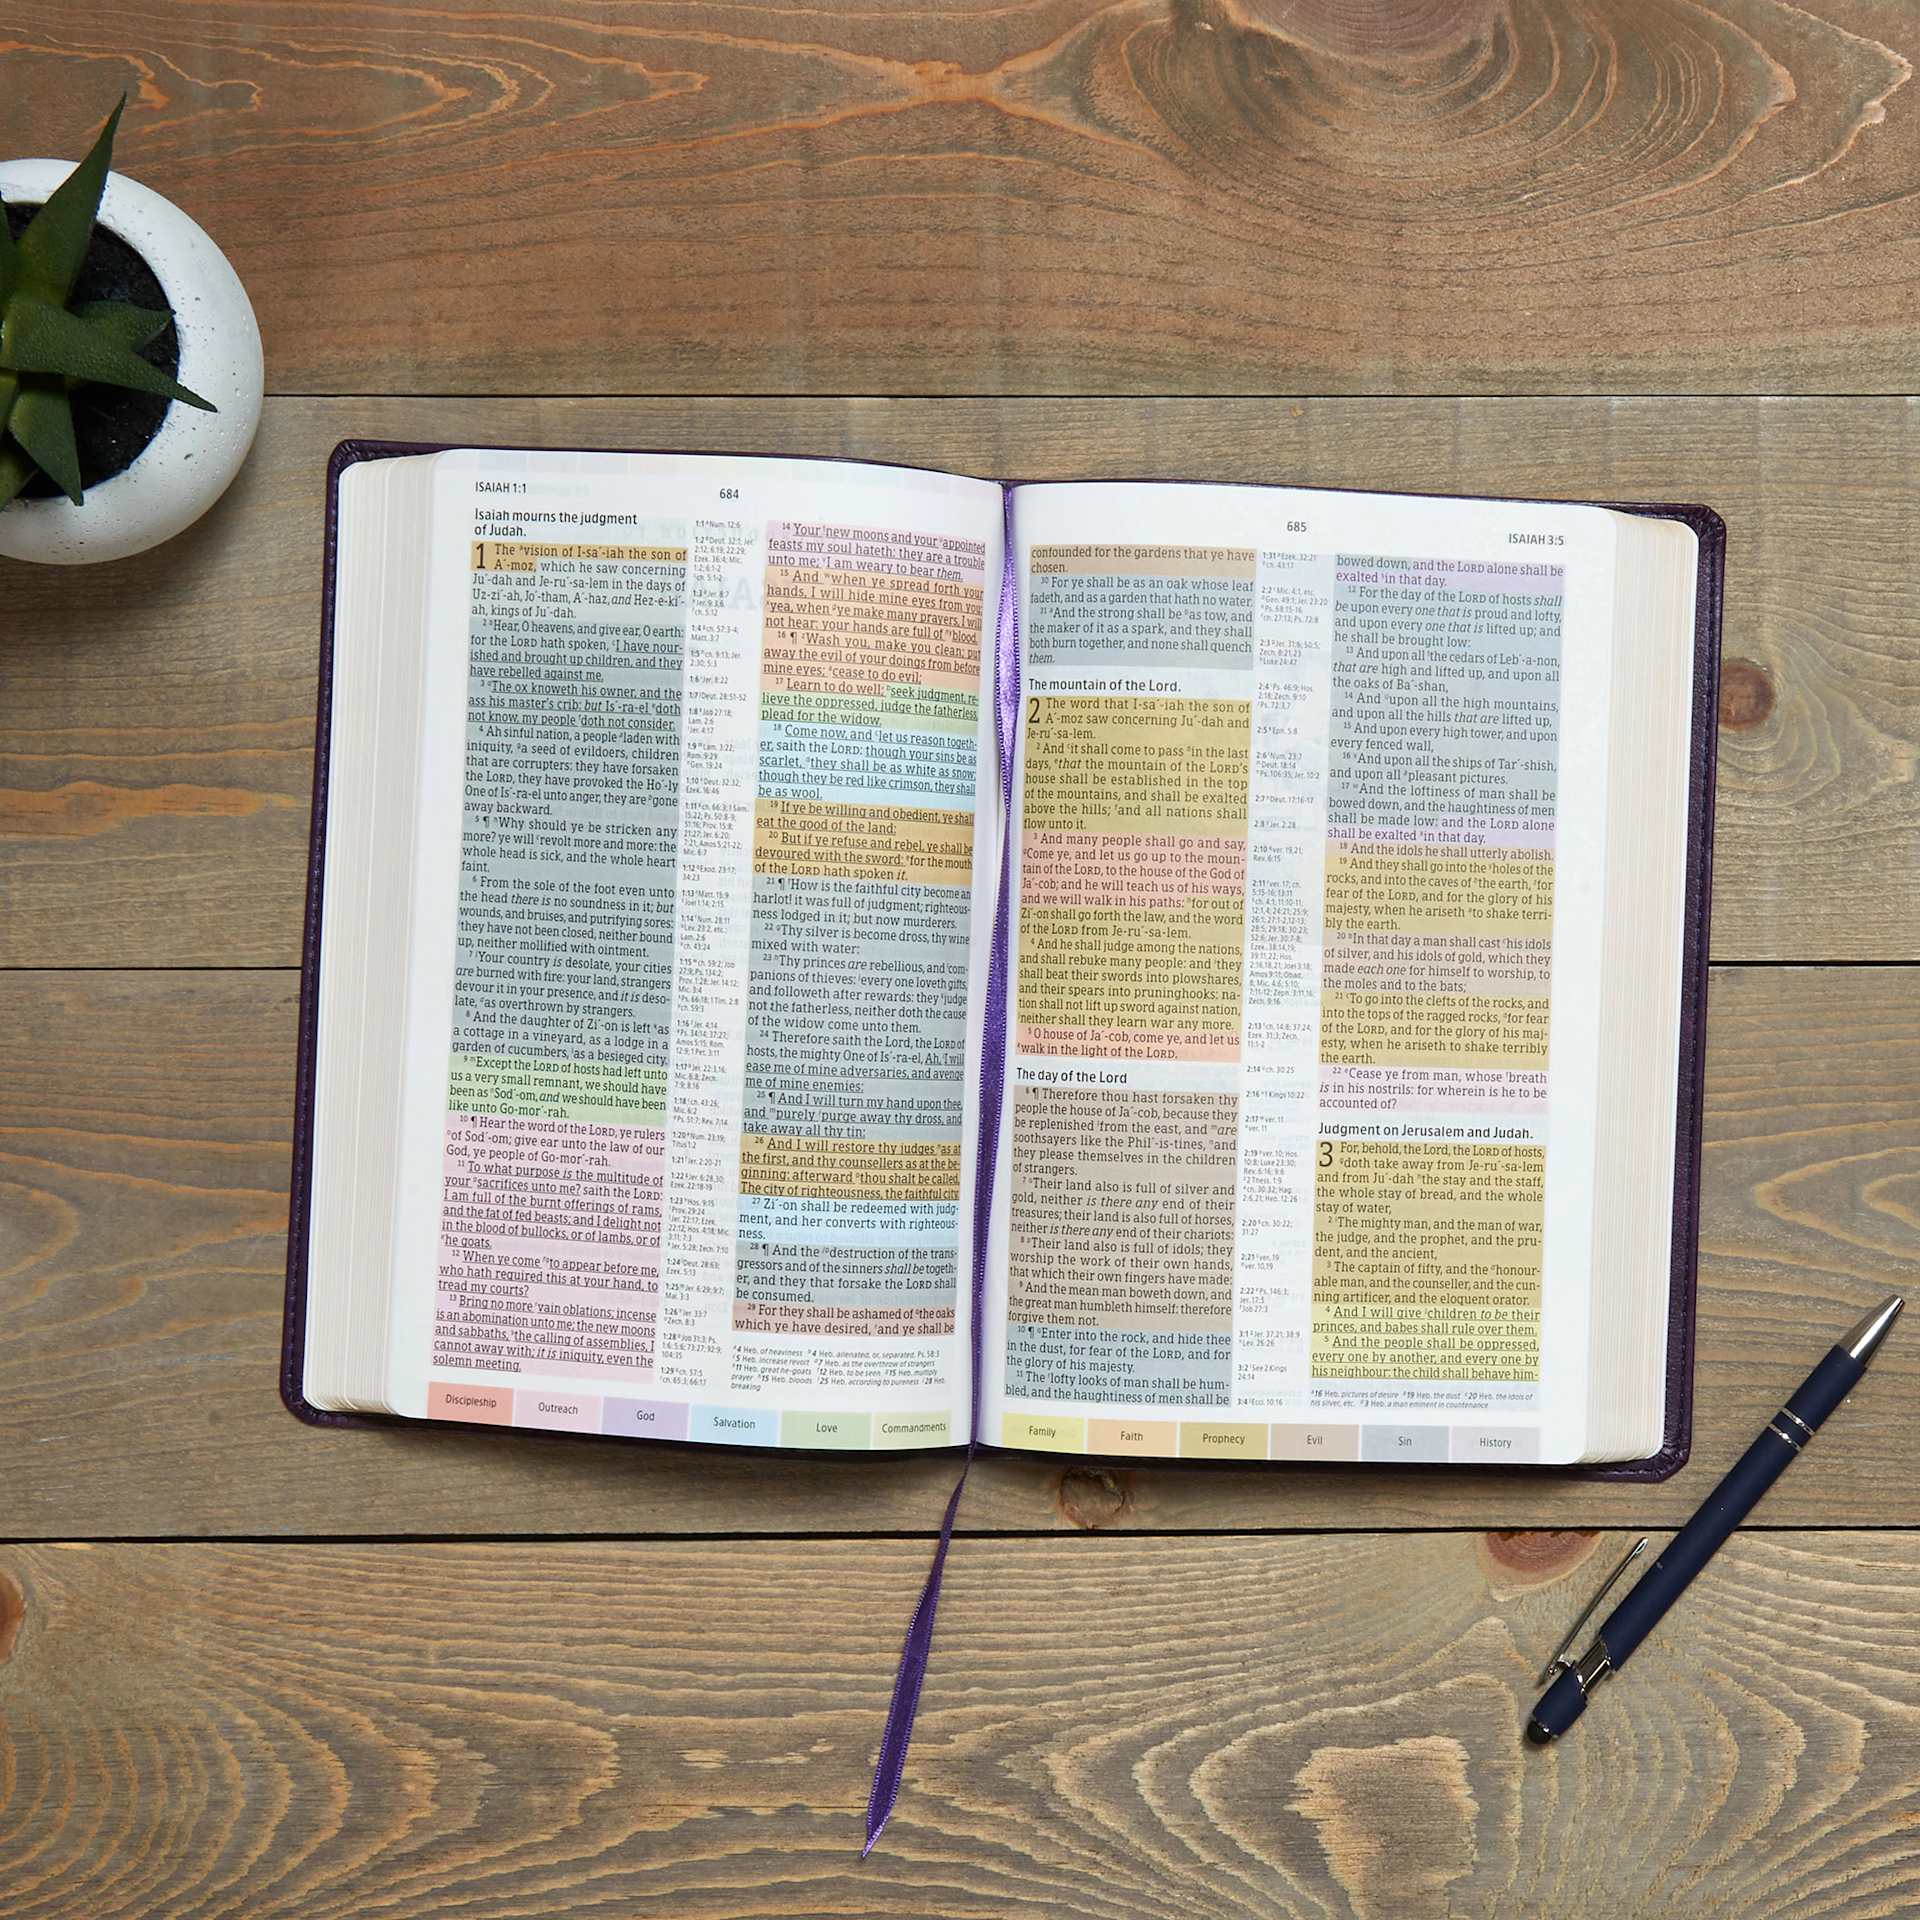 ISAIAH 1:1
684
Isaiah mourns the judgment
of Judah.
1 The vision of I-sa´-iah the son of
A´-moz, which he saw concerning
Ju´-dah and Je-ru´-sa-lem in the days of
Uz-zi´-ah, Jo´-tham, A´-haz, and Hez-e-ki´-
ah, kings of Ju´-dah.
2 Hear, O heavens, and give ear, O earth:
for the LORD hath spoken, I have nour-
ished and brought up children, and they
have rebelled against me.
3 The ox knoweth his owner, and the
ass his master's crib: but Is´-ra-el doth
not know, my people doth not consider.
4 Ah sinful nation, a people laden with
iniquity, a seed of evildoers, children
that are corrupters: they have forsaken
the LORD, they have provoked the Ho´-ly
One of Is´-ra-el unto anger, they are gone
away backward.
5 ¶ Why should ye be stricken any
more? ye will revolt more and more: the
whole head is sick, and the whole heart
faint.
6 From the sole of the foot even unto
the head there is no soundness in it; but
wounds, and bruises, and putrifying sores:
they have not been closed, neither bound
up, neither mollified with ointment.
7 Your country is desolate, your cities
are burned with fire: your land, strangers
devour it in your presence, and it is deso-
late, as overthrown by strangers.
8 And the daughter of Zi´-on is left as
a cottage in a vineyard, as a lodge in a
garden of cucumbers, as a besieged city.
9 Except the LORD of hosts had left unto
us a very small remnant, we should have
been as Sod´-om, and we should have been
like unto Go-mor´-rah.
10 ¶ Hear the word of the LORD, ye rulers
of Sod´-om; give ear unto the law of our
God, ye people of Go-mor´-rah.
11 To what purpose is the multitude of
your sacrifices unto me? saith the LORD:
I am full of the burnt offerings of rams,
and the fat of fed beasts; and I delight not
in the blood of bullocks, or of lambs, or of
he goats.
12 When ye come to appear before me,
who hath required this at your hand, to
tread my courts?
13 Bring no more vain oblations; incense
is an abomination unto me; the new moons
and sabbaths, the calling of assemblies, I
cannot away with; it is iniquity, even the
solemn meeting.
14 Your new moons and your appointed
feasts my soul hateth: they are a trouble
unto me; I am weary to bear them.
15 And when ye spread forth your
hands, I will hide mine eyes from you:
yea, when ye make many prayers, I will
not hear: your hands are full of blood.
16 ¶ Wash you, make you clean; put
away the evil of your doings from before
mine eyes; cease to do evil;
17 Learn to do well; seek judgment, re-
lieve the oppressed, judge the fatherless,
plead for the widow.
18 Come now, and let us reason togeth-
er, saith the LORD: though your sins be as
scarlet, they shall be as white as snow;
though they be red like crimson, they shall
be as wool.
19 If ye be willing and obedient, ye shall
eat the good of the land:
20 But if ye refuse and rebel, ye shall be
devoured with the sword: for the mouth
of the LORD hath spoken it.
21 ¶ How is the faithful city become an
harlot! it was full of judgment; righteous-
ness lodged in it; but now murderers.
22 Thy silver is become dross, thy wine
mixed with water:
23 Thy princes are rebellious, and com-
panions of thieves: every one loveth gifts,
and followeth after rewards: they judge
not the fatherless, neither doth the cause
of the widow come unto them.
24 Therefore saith the Lord, the LORD of
hosts, the mighty One of Is´-ra-el, Ah, I will
ease me of mine adversaries, and avenge
me of mine enemies:
25 ¶ And I will turn my hand upon thee,
and purely purge away thy dross, and
take away all thy tin:
26 And I will restore thy judges as at
the first, and thy counsellers as at the be-
ginning: afterward thou shalt be called,
The city of righteousness, the faithful city.
27 Zi´-on shall be redeemed with judg-
ment, and her converts with righteous-
ness.
28 ¶ And the destruction of the trans-
gressors and of the sinners shall be togeth-
er, and they that forsake the LORD shall
be consumed.
29 For they shall be ashamed of the oaks
which ye have desired, and ye shall be
4 Heb. of heaviness 4 Heb. alienated, or, separated, Ps. 58:3
5 Heb. increase revolt 7 Heb. as the overthrow of strangers
11 Heb. great he-goats 12 Heb. to be seen 15 Heb. multiply
prayer 15 Heb. bloods 25 Heb. according to pureness 28 Heb.
breaking
Discipleship
Outreach
God
Salvation
Love
Commandments
685
ISAIAH 3:5
confounded for the gardens that ye have
chosen.
30 For ye shall be as an oak whose leaf
fadeth, and as a garden that hath no water.
31 And the strong shall be as tow, and
the maker of it as a spark, and they shall
both burn together, and none shall quench
them.
The mountain of the Lord.
2 The word that I-sa´-iah the son of
A´-moz saw concerning Ju´-dah and
Je-ru´-sa-lem.
2 And it shall come to pass in the last
days, that the mountain of the LORD's
house shall be established in the top
of the mountains, and shall be exalted
above the hills; and all nations shall
flow unto it.
3 And many people shall go and say,
Come ye, and let us go up to the moun-
tain of the LORD, to the house of the God of
Ja´-cob; and he will teach us of his ways,
and we will walk in his paths: for out of
Zi´-on shall go forth the law, and the word
of the LORD from Je-ru´-sa-lem.
4 And he shall judge among the nations,
and shall rebuke many people: and they
shall beat their swords into plowshares,
and their spears into pruninghooks: na-
tion shall not lift up sword against nation,
neither shall they learn war any more.
5 O house of Ja´-cob, come ye, and let us
walk in the light of the LORD.
The day of the Lord
6 ¶ Therefore thou hast forsaken thy
people the house of Ja´-cob, because they
be replenished from the east, and are
soothsayers like the Phil´-is-tines, and
they please themselves in the children
of strangers.
7 Their land also is full of silver and
gold, neither is there any end of their
treasures; their land is also full of horses,
neither is there any end of their chariots:
8 Their land also is full of idols; they
worship the work of their own hands,
that which their own fingers have made:
9 And the mean man boweth down, and
the great man humbleth himself: therefore
forgive them not.
10 ¶ Enter into the rock, and hide thee
in the dust, for fear of the LORD, and for
the glory of his majesty.
11 The lofty looks of man shall be hum-
bled, and the haughtiness of men shall be
bowed down, and the LORD alone shall be
exalted in that day.
12 For the day of the LORD of hosts shall
be upon every one that is proud and lofty,
and upon every one that is lifted up; and
he shall be brought low:
13 And upon all the cedars of Leb´-a-non,
that are high and lifted up, and upon all
the oaks of Ba´-shan,
14 And upon all the high mountains,
and upon all the hills that are lifted up,
15 And upon every high tower, and upon
every fenced wall,
16 And upon all the ships of Tar´-shish,
and upon all pleasant pictures.
17 And the loftiness of man shall be
bowed down, and the haughtiness of men
shall be made low: and the LORD alone
shall be exalted in that day.
18 And the idols he shall utterly abolish.
19 And they shall go into the holes of the
rocks, and into the caves of the earth, for
fear of the LORD, and for the glory of his
majesty, when he ariseth to shake terri-
bly the earth.
20 In that day a man shall cast his idols
of silver, and his idols of gold, which they
made each one for himself to worship, to
the moles and to the bats;
21 To go into the clefts of the rocks, and
into the tops of the ragged rocks, for fear
of the LORD, and for the glory of his maj-
esty, when he ariseth to shake terribly
the earth.
22 Cease ye from man, whose breath
is in his nostrils: for wherein is he to be
accounted of?
Judgment on Jerusalem and Judah.
3 For, behold, the Lord, the LORD of hosts,
doth take away from Je-ru´-sa-lem
and from Ju´-dah the stay and the staff,
the whole stay of bread, and the whole
stay of water,
2 The mighty man, and the man of war,
the judge, and the prophet, and the pru-
dent, and the ancient,
3 The captain of fifty, and the honour-
able man, and the counseller, and the cun-
ning artificer, and the eloquent orator.
4 And I will give children to be their
princes, and babes shall rule over them.
5 And the people shall be oppressed,
every one by another, and every one by
his neighbour: the child shall behave him-
16 Heb. pictures of desire 19 Heb. the dust 20 Heb. the idols of
his silver, etc. 3 Heb. a man eminent in countenance
Family
Faith
Prophecy
Evil
Sin
History